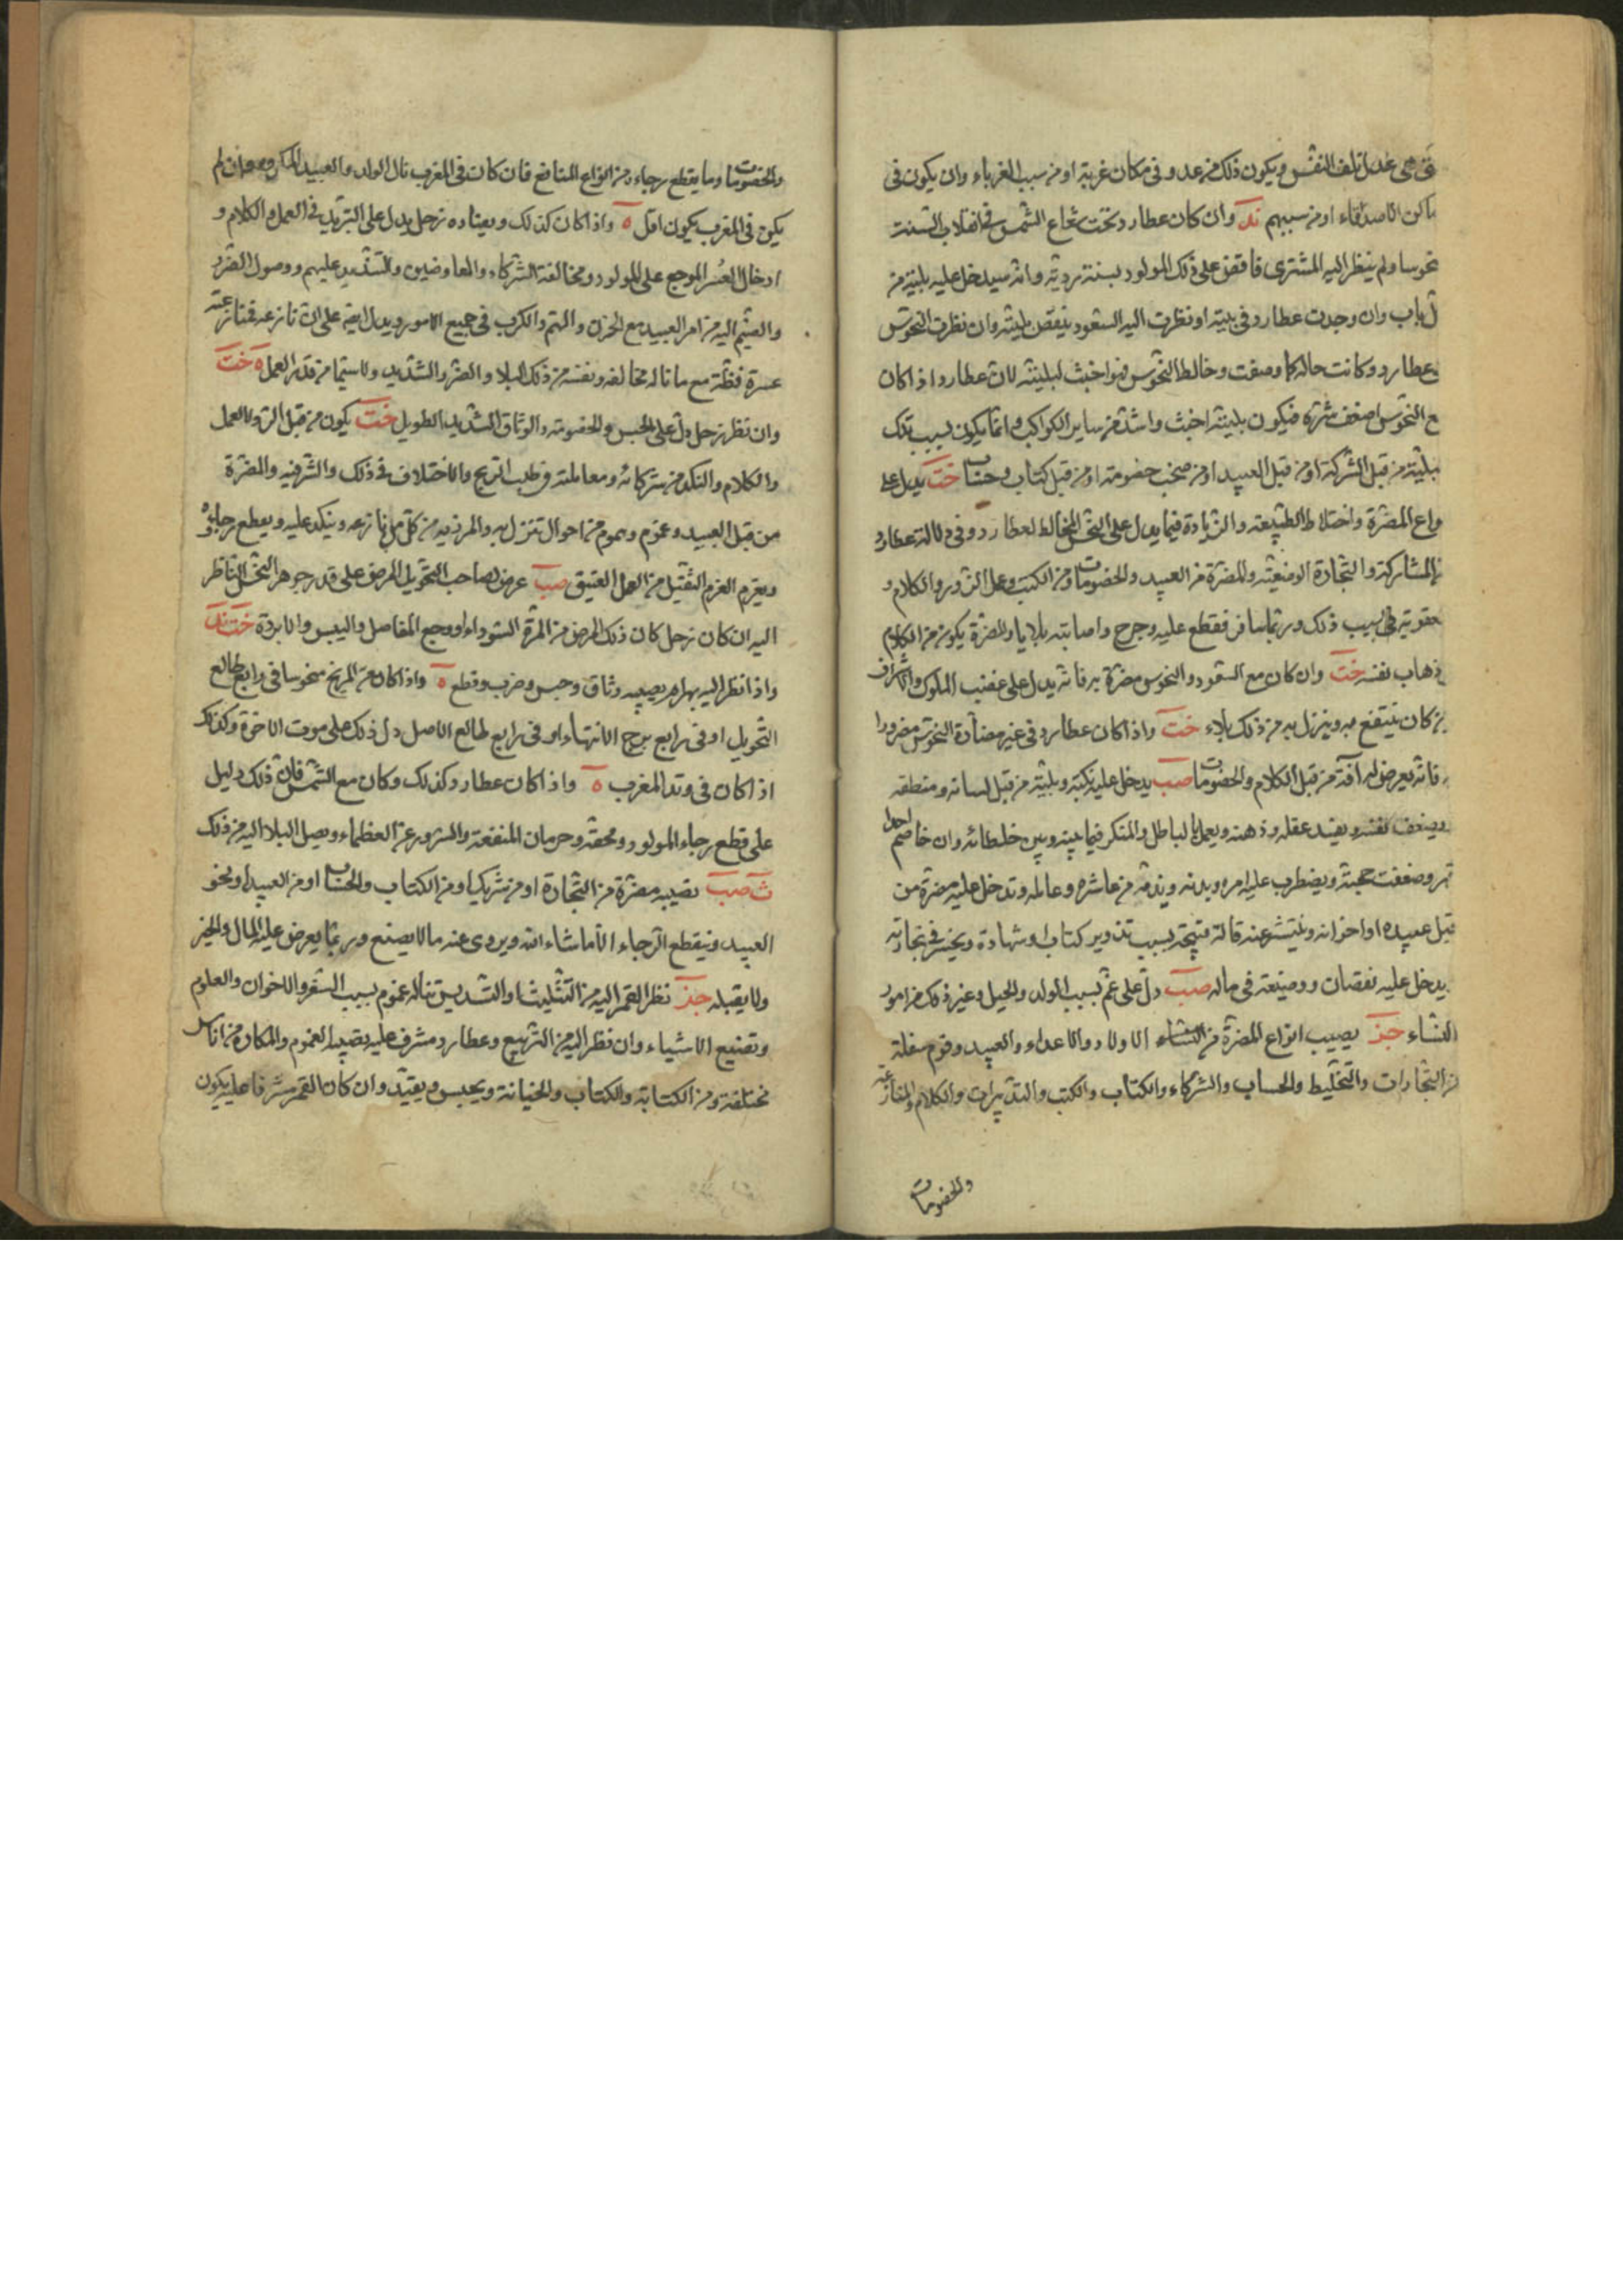 تلف النفس ويكون ذلك من عدو فى مكان غربة او من سبب الغرباء وان يكون فى
الاصدقاء او من سببهم ند وان كان عطارد تحت شعاع الشمس فى انقلاب السنة
منحوسا ولم ينظر اليه المشترى فاقض على ذلك المولود بسنة رديّة وانه سيدخل عليه بليّة من
باب وان وجدت عطارد فى بيته او نظرت اليه السعود ينقص بليته وان نظرت النحوس
عطارد وكانت حاله كما وصفت وخالط النحوس فهو اخبث لبليته لان عطارد اذا كان
مع النحوس اضعف شره فيكون بليته اخبث واشد من ساير الكواكب وانما يكون بسبب تلك
بليّة من قبل الشركة او من قبل العبيد او من صخب خصومة او من قبل كتاب وحساب خت يدل على
انواع المضرة واختلاط الطبيعة والزيادة فيما يدل على النحس المخالط لعطارد وفى دلالة عطارد
المشاركة والتجارة الوضيعة والمضرة من العبيد والخصومات ومن الكتب وعمل الزور والكلام و
عقوبة فى سبب ذلك وربما سافر فقطع عليه وجرح واصابته بلايا والمضرة يكون من الكلام
ذهاب نفسه خت وان كان مع السعود والنحوس مضرة به فانه يدل على غضب الملوك والاشراف
كان ينتفع به وينزل به من ذلك بلاء خت واذا كان عطارد فى غير مضادة النحوس مضرورا
فانه يعرض له آفة من قبل الكلام والخصومات صب يدخل عليه نكبة وبليّة من قبل لسانه ومنطقه
ويضعف نفسه ويفسد عقله وذهنه ويعمل بالباطل والمنكر فيما بينه وبين خلطائه وان خاصم احدا
قهر وضعفت حجته ويضطرب عليه امره وبدنه ويذمه من عاشره وعامله وتدخل عليه مضرة من
قبل عبيده او اخوانه وينتشر عنه قالة قبيحة بسبب تزوير كتاب او شهادة ويخسر فى تجارته
يدخل عليه نقصان ووضيعة فى ماله صب دل على غم بسبب الولد والحيل وغير ذلك من امور
النساء جز يصيب انواع المضرة من النساء الاولاد والاعداء والعبيد وقوم سفلة
من التجارات والتخليط والحساب والشركاء والكتاب والكتب والتدبيرات والكلام والمنازعة
والخصومات
والخصومات وما يقطع رجاءه من انواع المنافع فان كان فى المغرب نال الولد والعبيد المكروه وان لم
يكن فى المغرب يكون اقل ه واذا كان كذلك ويضاده زحل يدل على التبريد فى العمل والكلام و
ادخال العُسر الموجع على المولود ومخالفة الشركاء والمعاوضين والتشديد عليهم ووصول الضرر
والضيم اليه من امر العبيد مع الحزن والهم والكرب فى جميع الامور ويدل ايضا على ان نازعه فمنازعته
عسرة فظة مع ما ناله مخالفه ونفسه من ذلك البلاء والضر والشديد ولا سيما من قدر العمل ه خت
وان نظر زحل دل على الحبس والخصومة والوثاق الشديد الطويل خت يكون من قبل العمل
والكلام والنكد من شركائه ومعاملته وطلب الربح والاختلاف فى ذلك والمضرة
من قبل العبيد وغموم وهموم من احوال تنزل به من كل من نازعه وينكد عليه ويقطع رجاءه
ويغرم الغرم الثقيل من العمل العتيق صب عرض لصاحب التحويل المرض على قدر جوهر النحس الناظر
اليه ان كان زحل كان ذلك المرض من المرة السوداء او وجع المفاصل واليبس والابردة خت ند
واذا نظر اليه بهرام يصيبه وثاق وحبس وضرب وقطع ه واذا كان مع المريخ منحوسا فى رابع طالع
التحويل او فى رابع برج الانتهاء او فى رابع طالع الاصل دل ذلك على موت الاخوة وكذلك
اذا كان فى وتد المغرب ه واذا كان عطارد كذلك وكان مع الشمس فان ذلك دليل
على قطع رجاء المولود ومحقه وحرمان المنفعة والسرور عن العظماء ويصل البلاء اليه من ذلك
ث صب يصيبه مضرة من التجارة او من شريك او من الكتاب والحساب او من العبيد او نحو
العبيد وينقطع الرجاء الا ما شاء الله ويروى عنه ما لا يصنع وربما يعرض عليه المال والخير
ولا يقبله جز نظر القمر اليه من التثليث او التسديس تناله غموم بسبب السفر والاخوان والعلوم
وتضييع الاشياء وان نظر اليه من التربيع وعطارد مشرف عليه يصيبه الغموم والمكاره من اناس
مختلفة ومن الكتابة والكتاب والخيانة ويحبس ويقيد وان كان القمر مشرفا عليه يكون